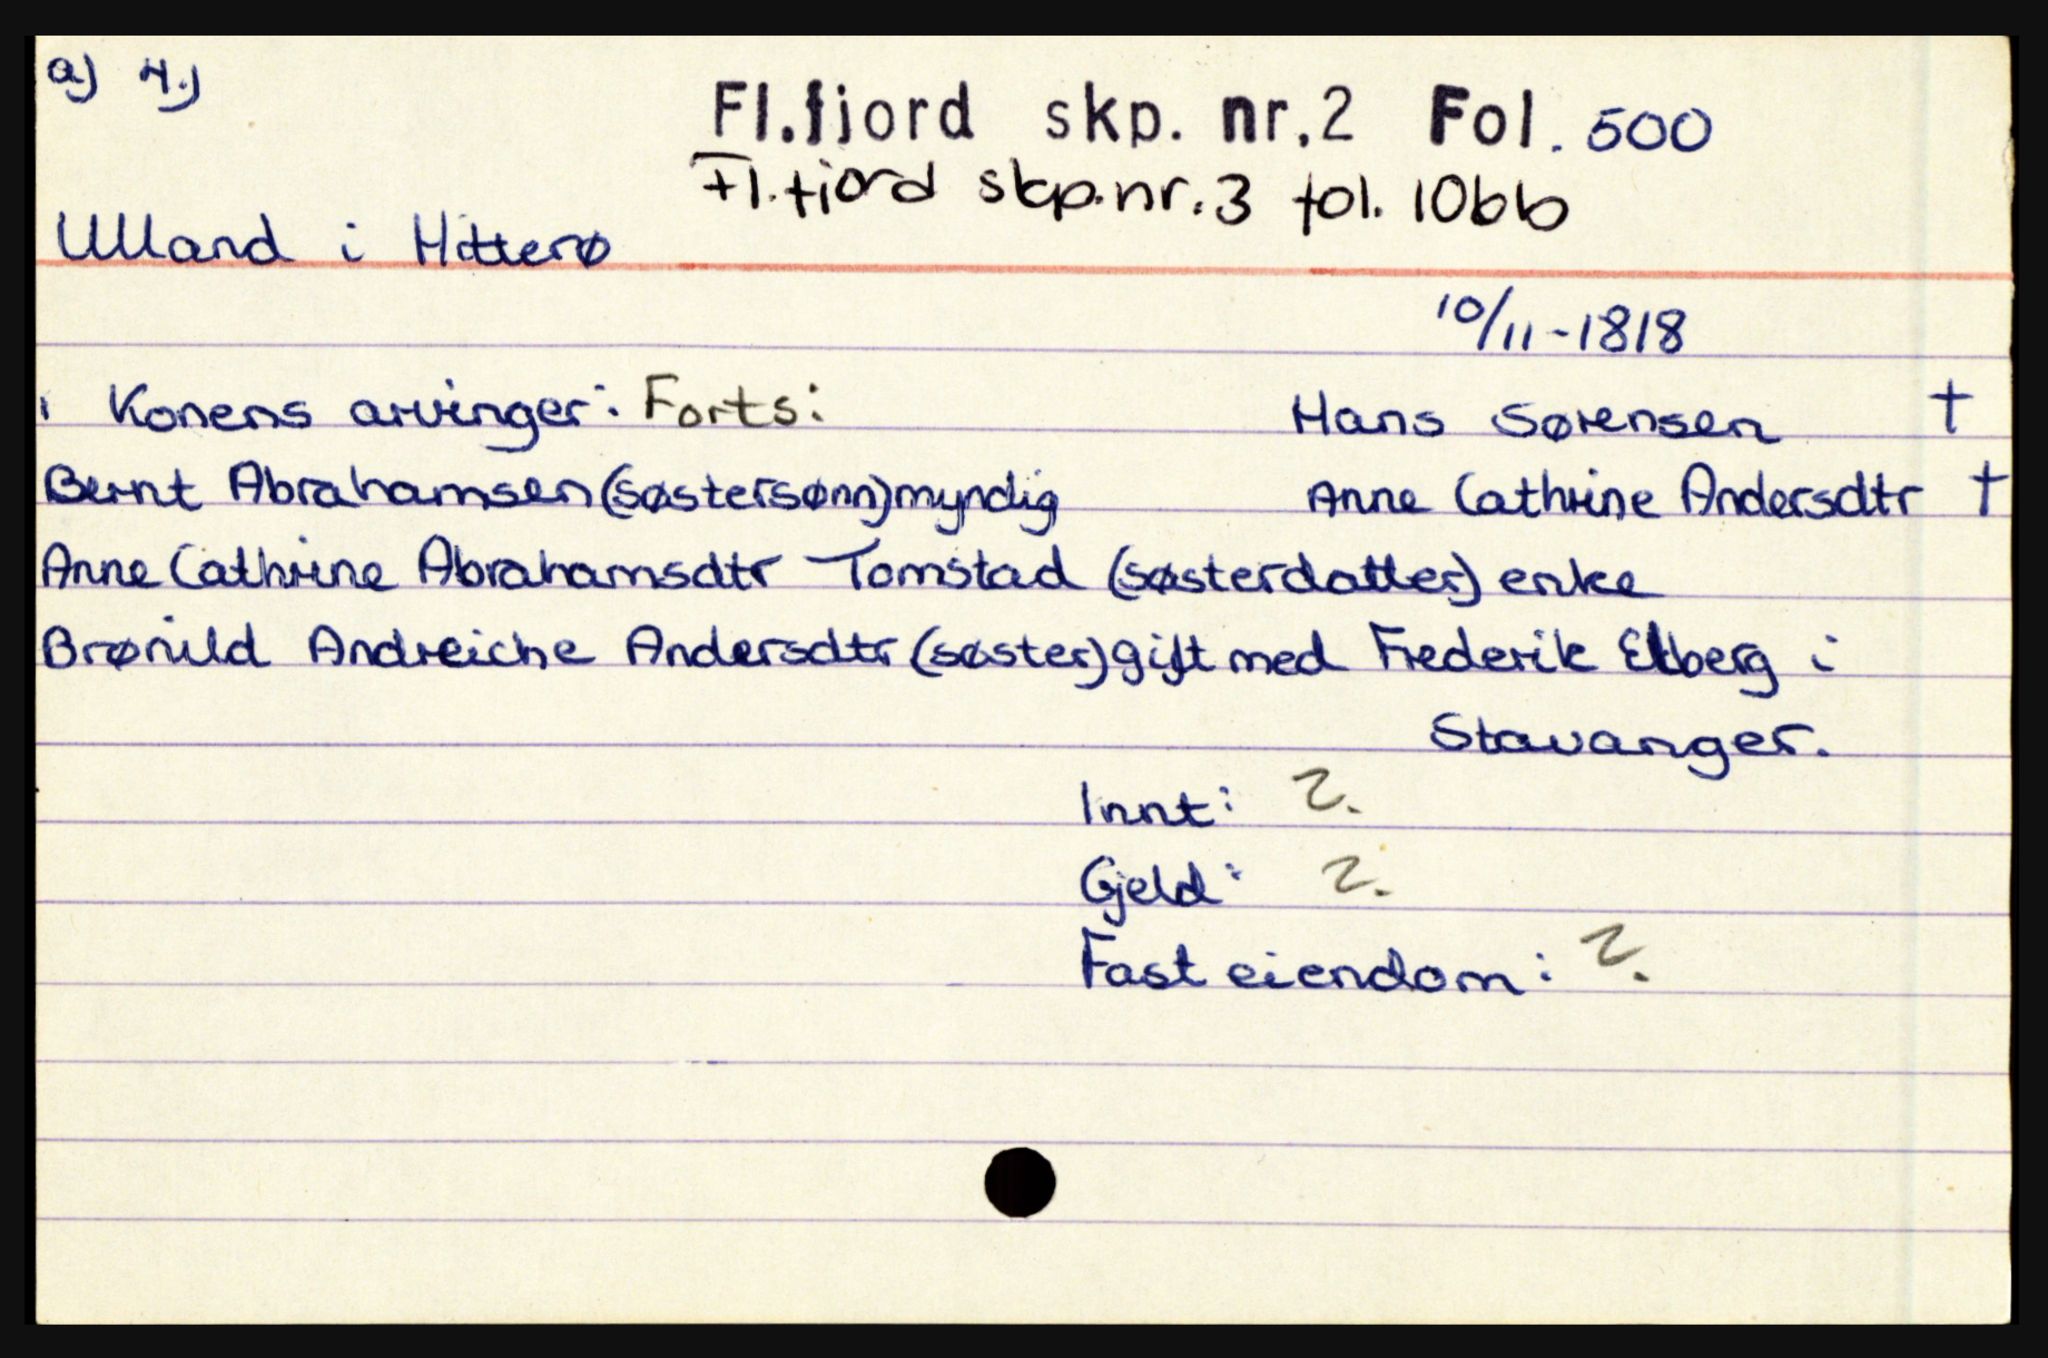 a) 4.)
Fl.fjord skp. nr.2 Fol. 500
Fl.fjord skp.nr.3 fol. 106b
Ulland i Hitterø
10/11-1818
Konens arvinger: Forts: Hans Sørensen †
Bernt Abrahamsen (søstersønn) myndig Anne Cathrine Andersdtr †
Anne Cathrine Abrahamsdtr Tomstad (søsterdatter) enke
Brønild Andreiche Andersdtr (søster) gift med Frederik Elberg i
Stavanger.
Innt: ?
Gjeld: ?
Fast eiendom: ?